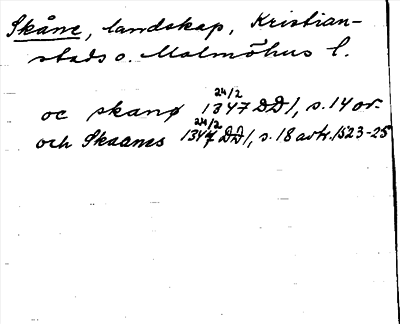 Skåne, landskap, Kristian-
stads o. Malmöhus l.
oc skanø 24/2 1347 DD1, s. 14 or.
och Skaanes 24/2 1347 DD1, s. 18 avtr. 1523-25